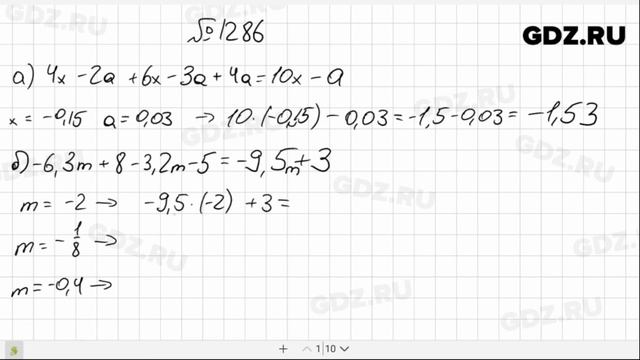 №1286
GDZ.RU
а) 4x - 2a + 6x - 3a + 4a = 10x - a
x = -0,15 a = 0,03 → 10·(-0,15) - 0,03 = -1,5 - 0,03 = -1,53
б) -6,3m + 8 - 3,2m - 5 = -9,5m + 3
m = -2 → -9,5·(-2) + 3 =
m = -1/8 →
m = -0,4 →
GDZ.RU
GDZ.RU
GDZ.RU
GDZ.RU
GDZ.RU
1 | 10